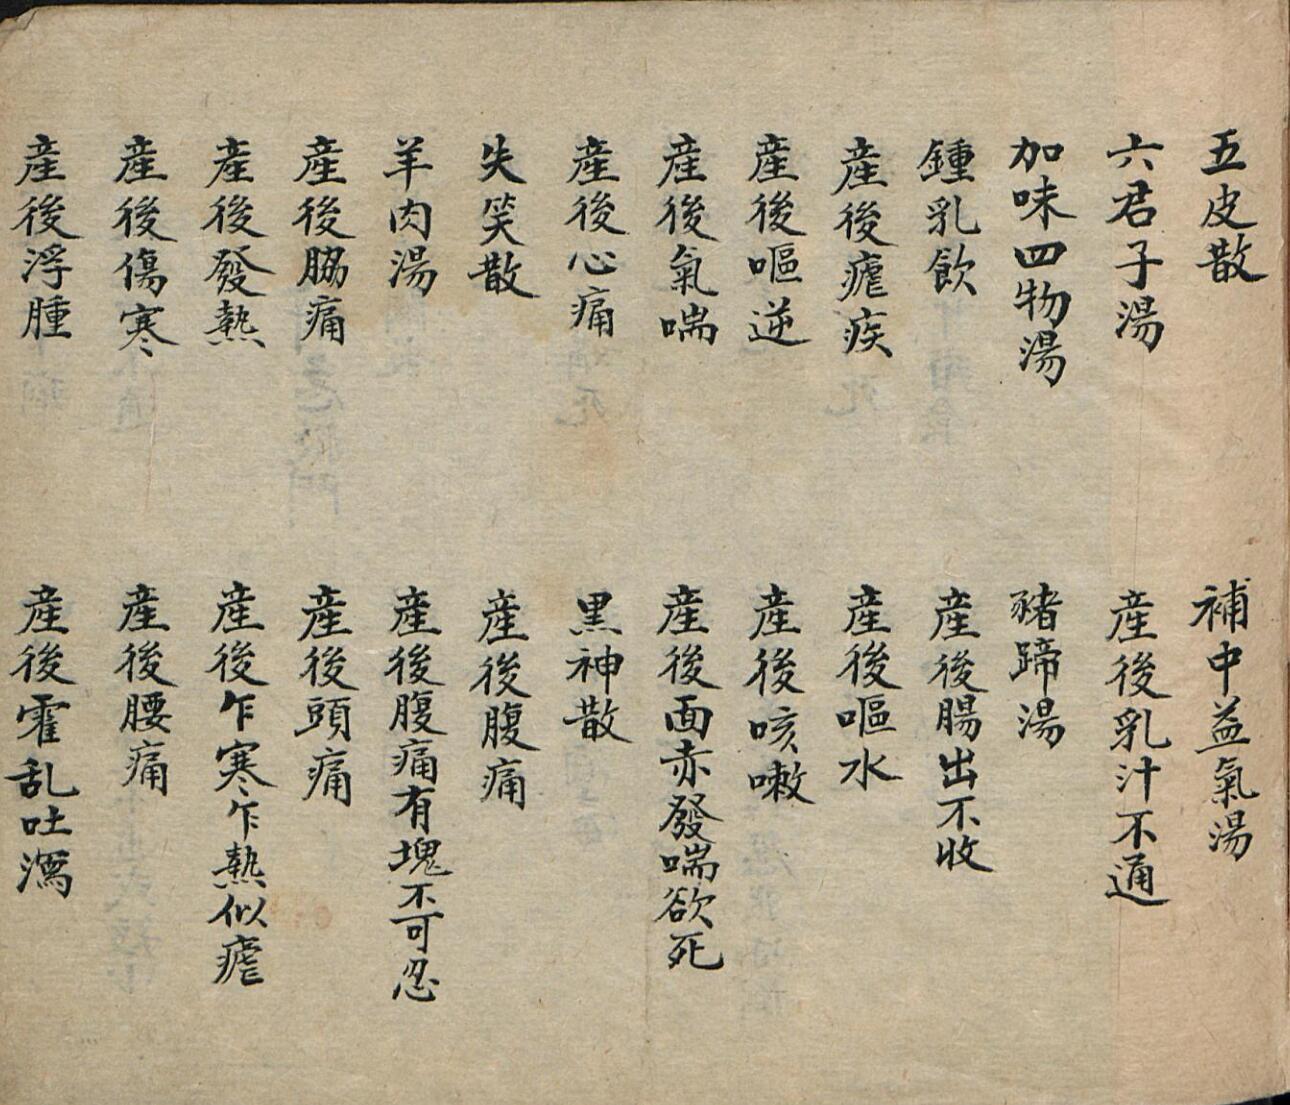 五皮散
補中益氣湯
六君子湯
産後乳汁不通
加味四物湯
豬蹄湯
鍾乳飲
産後腸出不收
産後瘧疾
産後嘔水
産後嘔逆
産後咳嗽
産後氣喘
産後面赤發喘欲死
産後心痛
黒神散
失笑散
産後腹痛
羊肉湯
産後腹痛有塊不可忍
産後脇痛
産後頭痛
産後發熱
産後乍寒乍熱似瘧
産後傷寒
産後腰痛
産後浮腫
産後霍乱吐瀉